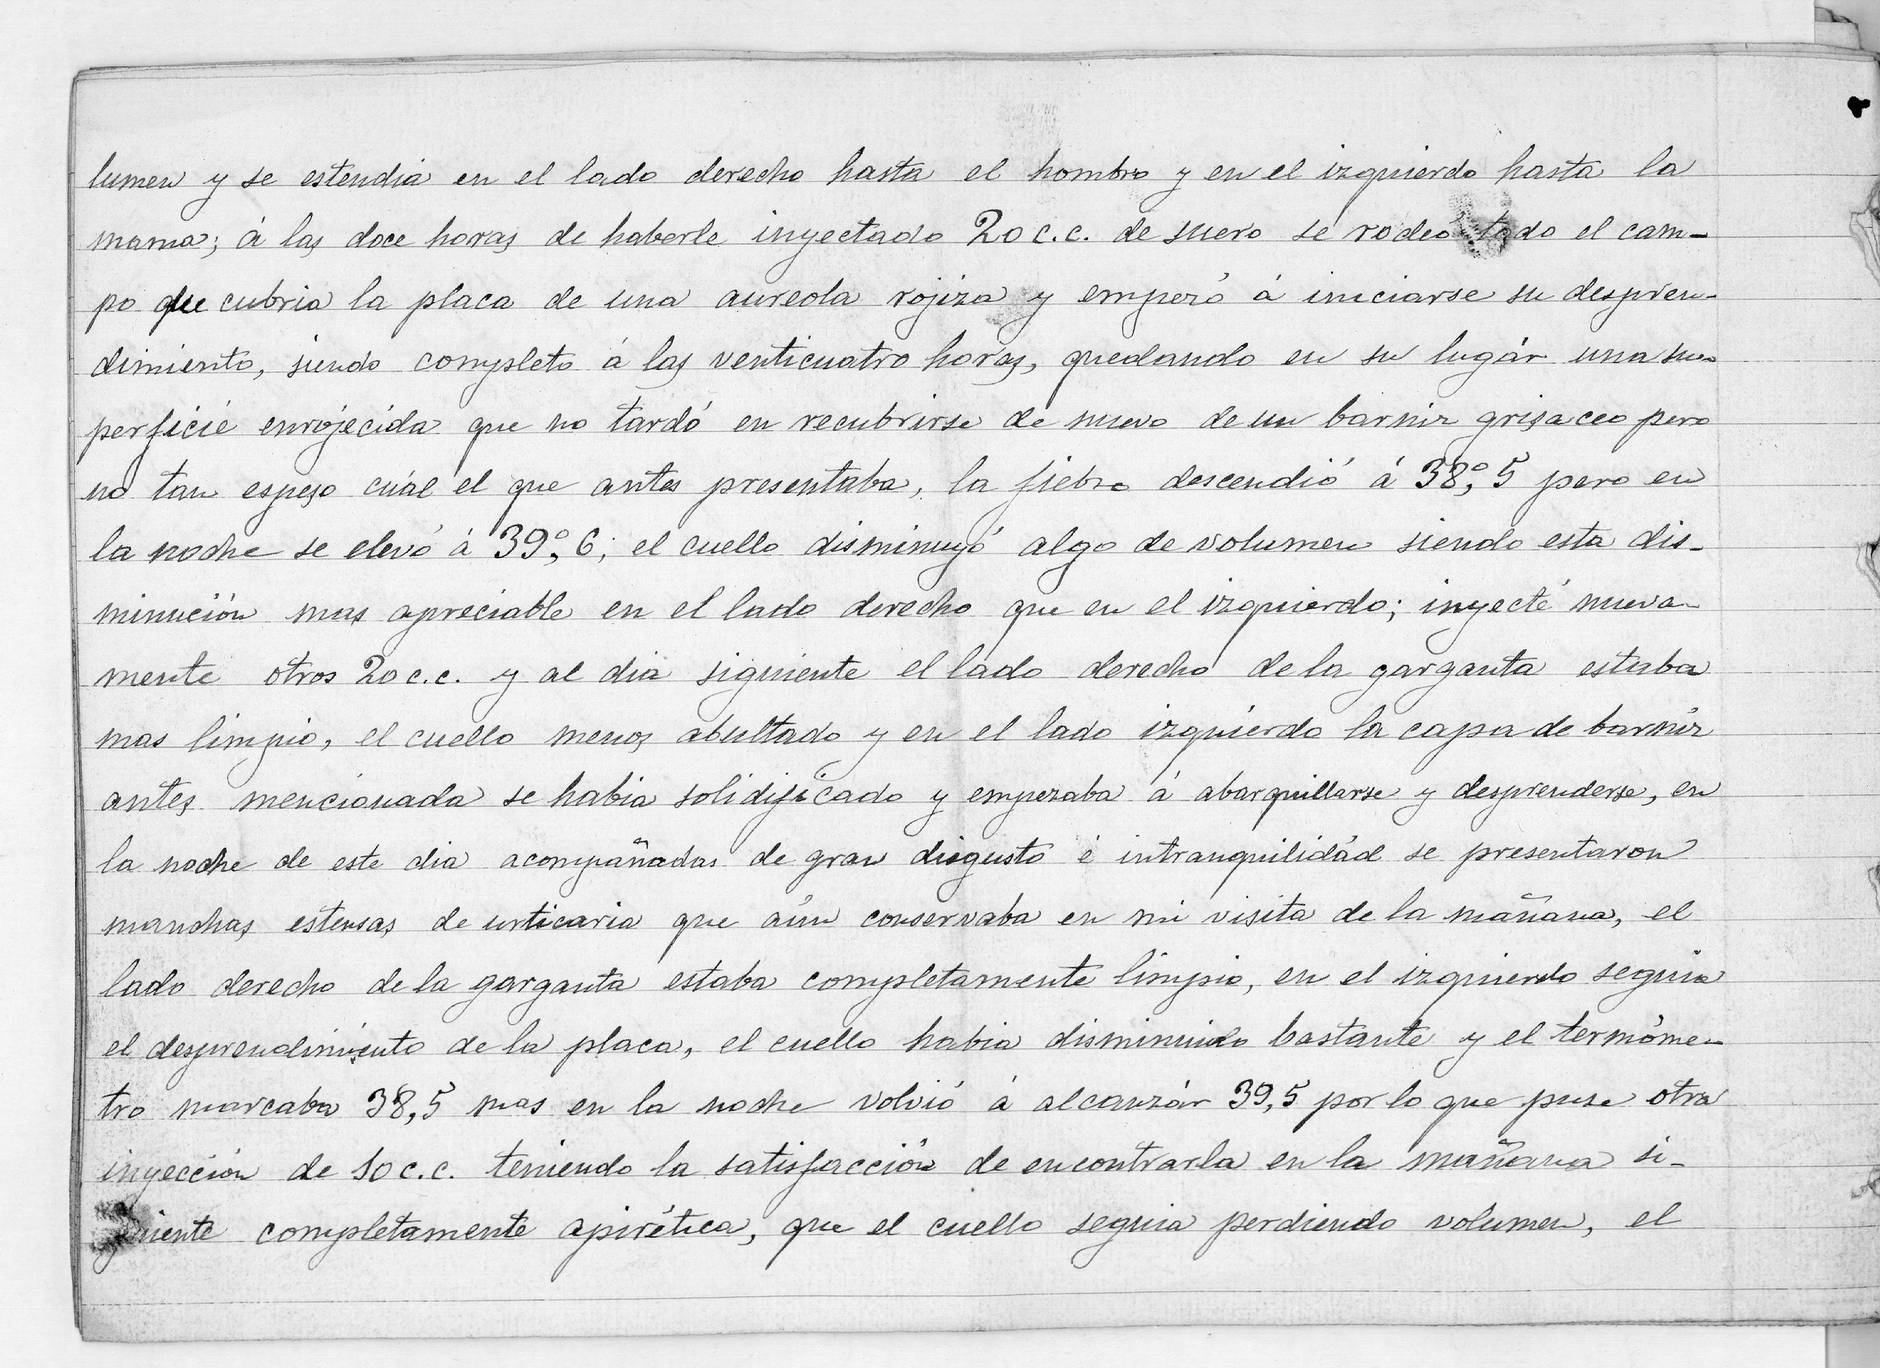 lumen y se estendia en el lado derecho hasta el hombro y en el izquierdo hasta la
mama; á las doce horas de haberle inyectado 20 c.c. de suero se rodeó todo el cam-
po que cubria la placa de una aureola rojiza y empezó á iniciarse su despren-
dimiento, siendo completo á las venticuatro horas, quedando en su lugár una su-
perficié enrojecida que no tardó en recubrirse de nuevo de un barniz grisaceo pero
no tan espeso cuál el que antes presentaba, la fiebre descendió á 38,º5 pero en
la noche se elevó á 39,º6; el cuello disminuyó algo de volumen siendo esta dis-
minución mas apreciable en el lado derecho que en el izquierdo; inyecté nueva-
mente otros 20 c.c. y al dia siguiente el lado derecho de la garganta estaba
mas limpio, el cuello menos abultado y en el lado izquierdo la capa de barníz
antes mencionada se habia solidificado y empezaba á abarquillarse y desprenderse, en
la noche de este dia acompañadas de gran disgusto é intranquilidád se presentaron
manchas estensas de urticaria que aún conservaba en mi visita de la mañana, el
lado derecho de la garganta estaba completamente limpio, en el izquierdo seguia
el desprendimiento de la placa, el cuello habia disminuido bastante y el termóme-
tro marcaba 38,5 mas en la noche volvió á alcanzár 39,5 por lo que puse otra
inyección de 10 c.c. teniendo la satisfacción de encontrarla en la mañana si-
guiente completamente apirética, que el cuello seguia perdiendo volumen, el